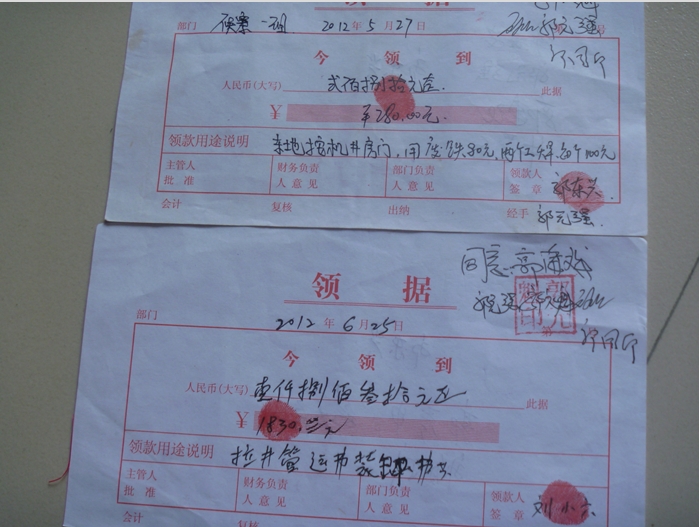 领 据
部门 侯寨一组 2012年5月27 号
今 领 到
人民币(大写) 贰佰捌拾元整. 此据
¥ ¥280.00元.
领款用途说明 东地挖机井房门,用废铁80元,两个工焊,每个100元
主管人 批准 财务负责人意见 部门负责人意见 领款人签章 郭东兴
会计 复核 出纳 经手 郭元强
同意
领 据
部门
2012年6月25日
今 领 到
人民币(大写) 壹仟捌佰叁拾元正 此据
¥ 1830.00元
领款用途说明 拉井管运费装卸费共
主管人 批准 财务负责人意见 部门负责人意见 领款人签章 刘小六
会计 复核